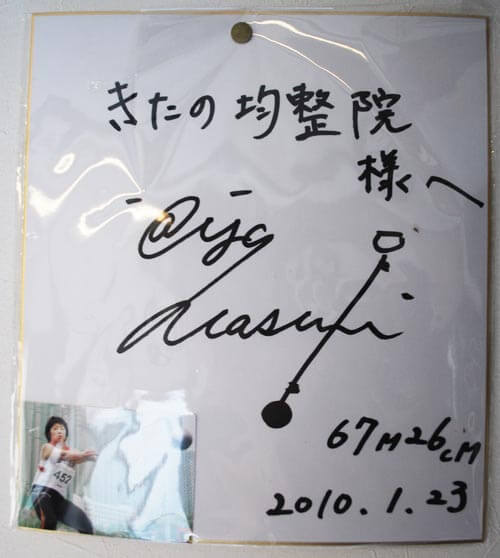 きたの均整院
様へ
Aya
Masumi
67M26cM
2010.1.23
457